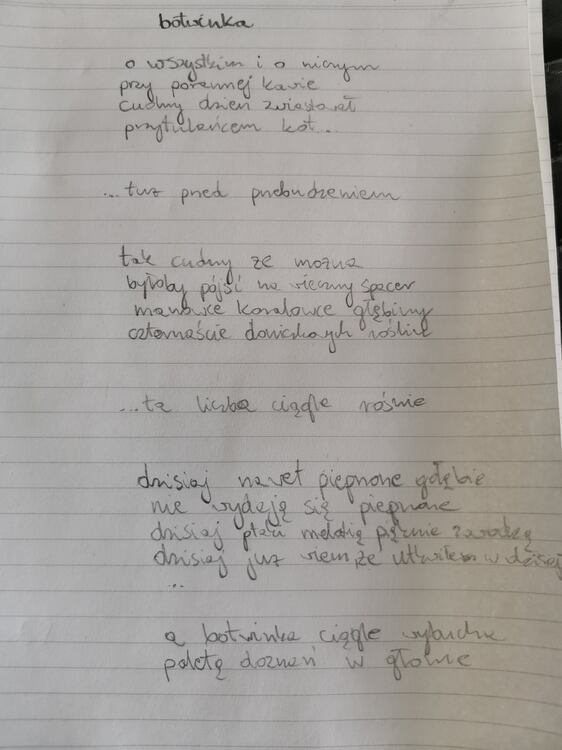 botwinka
o wszystkim i o niczym
przy porannej kawie
cudny dzień zwiastował
przytulańcem kot...
...tuż przed przebudzeniem
tak cudny że można
byłoby pójść na wieczny spacer
manowce koralowce głębiny
czternaście doniczkowych roślin
...ta liczba ciągle rośnie
dzisiaj nawet pieprzone gołębie
nie wydają się pieprzone
dzisiaj ptasi melodią pięknie
dzisiaj już wiem, że utkwiłem w dzisiaj
...
a botwinka ciągle wybucha
paletą doznań w głowie